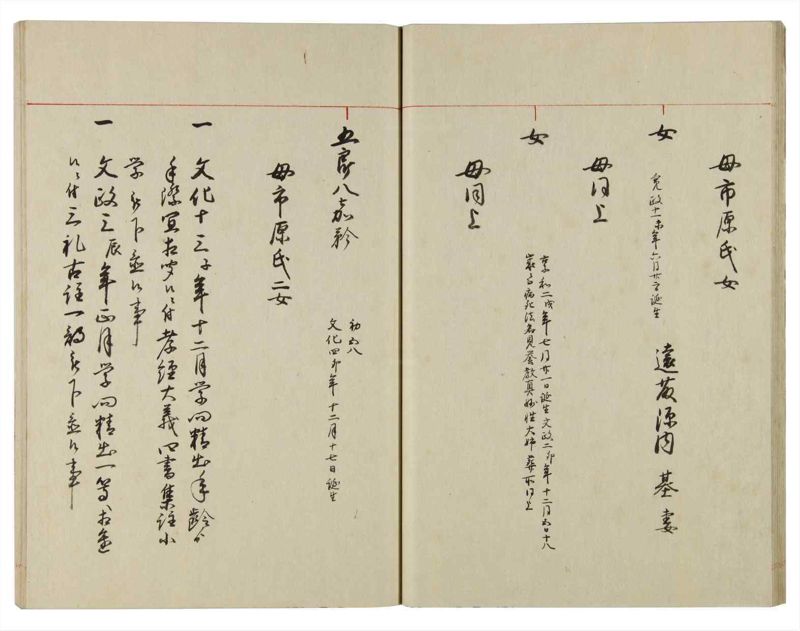 母市原氏女
女
寛政十一未年六月廿二日誕生
遠藤源内 基妻
母同上
女
享和二戌年七月廿一日誕生文政二卯年十二月五日十八
歳ニ而病死法名見誉教真妙性大姉葬所同上
母同上
五家八
初五八
文化四卯年十二月十七日誕生
母市原氏二女
一 文化十三子年十二月学问精出年齢
手際宜相聞候ニ付孝経大義四書集註小
学被下置候事
一 文政三辰年正月学问精出一等相進
候ニ付三礼古註一部被下置候事